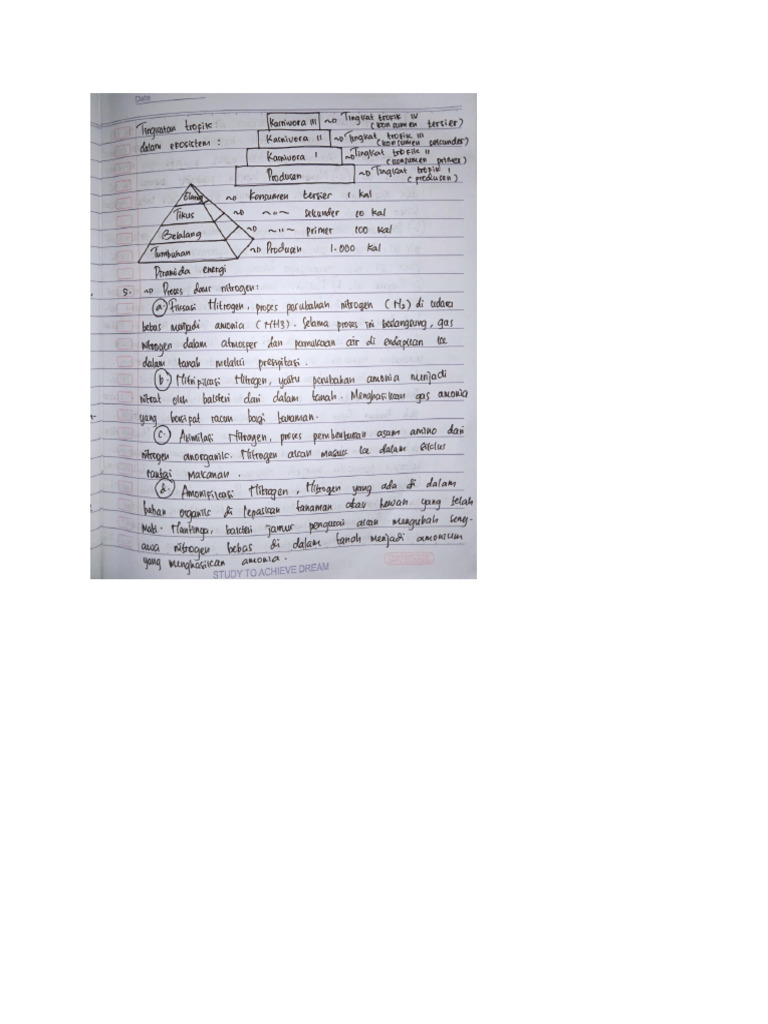 Date
Tingkatan trofik
dalam ekosistem :
Karnivora III ~> Tingkat trofik IV
(konsumen tersier)
Karnivora II ~> Tingkat trofik III
(konsumen sekunder)
Karnivora I ~> Tingkat trofik II
(konsumen primer)
Produsen ~> Tingkat tropik I
(produsen)
Elang ~> Konsumen tersier 1 kal
Tikus ~> ~"~ sekunder 10 kal
Belalang ~> ~"~ primer 100 kal
Tumbuhan ~> Produsen 1.000 kal
Piramida energi
5. ~> Proses daur nitrogen :
a. Fiksasi Nitrogen, proses perubahan nitrogen (N2) di udara
bebas menjadi amonia (NH3). Selama proses ini berlangsung, gas
nitrogen dalam atmosper dan permukaan air di endapkan ke
dalam tanah melalui presipitasi.
b. Nitripikasi Nitrogen, yaitu perubahan amonia menjadi
nitrat oleh bakteri dari dalam tanah. Menghasilkan gas amonia
yang bersipat racun bagi tanaman.
c. Asimilasi Nitrogen, proses pembentukan asam amino dari
nitrogen anorganik. Nitrogen akan masuk ke dalam siklus
rantai makanan.
d. Amonifikasi Nitrogen, Nitrogen yang ada di dalam
bahan organik di lepaskan tanaman atau hewan yang telah
mati. Nantinya, bakteri jamur pengurai akan mengubah seny-
awa nitrogen bebas di dalam tanah menjadi amonium
yang menghasilkan amonia.
STUDY TO ACHIEVE DREAM